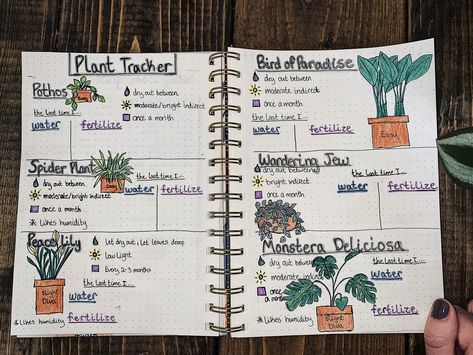 Plant Tracker
Pothos
dry out between
moderate/bright indirect
once a month
the last time I...
water fertilize
Spider Plant
dry out between
moderate/bright indirect
once a month
* Likes humidity
the last time I...
water fertilize
Peace Lily
Let dry out, let leaves droop
Low Light
Every 2-3 months
the last time I...
water
fertilize
Slight
Diva
* Likes humidity
Bird of Paradise
dry out between
moderate indirect
once a month
the last time I...
water fertilize
Easy
Wandering Jew
dry out between
bright indirect
once a month
the last time I...
water fertilize
Monstera Deliciosa
dry out between
moderate indirect
once a month
* Likes humidity
Slight
Diva
the last time I...
water
fertilize